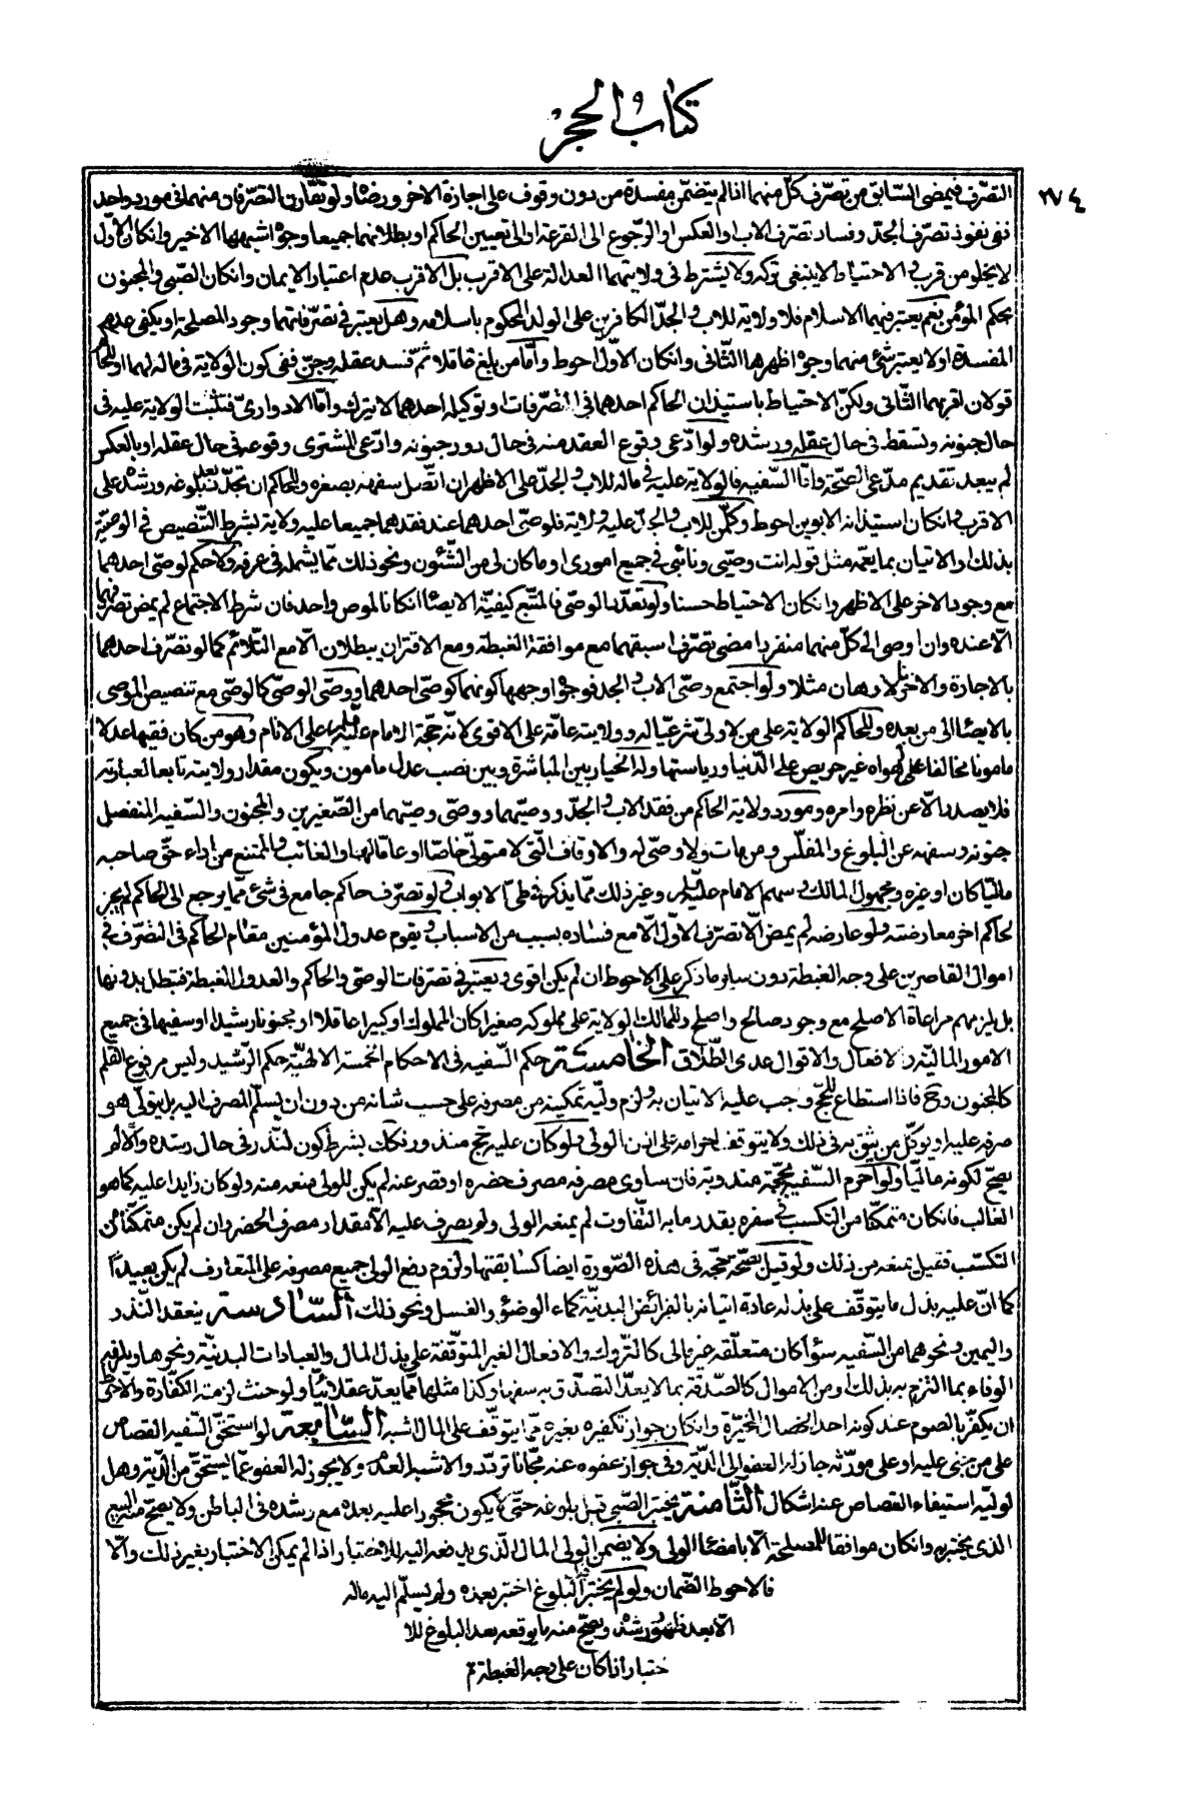 كتاب الحجر
٢٧٤
التصرّف فيمضى السّابق من تصرّف كلّ منهما اذا لم يتضمّن مفسدة من دون وقوف على اجازة الاخر ورضاه ولو تقارن التصرّفان منهما فى مورد واحد
ففى نفوذ تصرّف الجدّ وفساد تصرّف الاب او العكس او الرّجوع الى القرعة او الى تعيين الحاكم او بطلانهما جميعا وجوه اشبهها الاخير وانكان الاوّل
لا يخلو من قرب و الاحتياط لا ينبغى تركه ولا يشترط فى ولايتهما العدالة على الاقرب بل الاقرب عدم اعتبار الايمان وانكان الصّبى والمجنون
بحكم المؤمن نعم يعتبر فيهما الاسلام فلا ولاية للاب والجدّ الكافرين على الولد المحكوم باسلامه وهل يعتبر فى تصرّفاتهما وجود المصلحة او يكفى عدم
المفسدة او لا يعتبر شئ منهما وجوه اظهرها الثّانى وانكان الاوّل احوط وأمّا من بلغ عاقلا ثمّ فسد عقله وجنّ ففى كون الولاية فى ماله لهما او للحاكم
قولان اقربهما الثّانى ولكنّ الاحتياط باستيذان الحاكم احدهما فى التصرّفات او توكيله احدهما لا يترك وامّا الادوارىّ فتثبت الولاية عليه فى
حال جنونه وتسقط فى حال عقله ورشده ولو ادّعى وقوع العقد منه فى حال دور جنونه وادّعى المشترى وقوعه فى حال عقله او بالعكس
لم يبعد تقديم مدّعى الصّحّة وامّا السّفيه فالولاية عليه فى ماله للاب والجدّ على الاظهر ان اتّصل سفهه بصغره وللحاكم ان تجدّد بعد بلوغه ورشده على
الاقرب وانكان استيذانه الابوين احوط وكلّ من للاب والجدّ عليه ولاية فلو وصّى احدهما عند فقدهما جميعا عليه ولاية بشرط التّنصيص فى الوصيّة
بذلك او الاتيان بما يعمّه مثل قوله انت وصيّى ونائبى فى جميع امورى او ما كان لى من الشّئون ونحو ذلك ممّا يشمله فى عرفه ولا حكم لوصّى احدهما
مع وجود الاخر على الاظهر وانكان الاحتياط حسنا ولو تعدّد الوصّى فالمتّبع كيفيّة الايصاء انكانا لموص واحد فان شرط الاجتماع لم يمض تصرّفهما
الّا عنده وان اوصى الى كلّ منهما منفردا مضى تصرّف اسبقهما مع موافقة الغبطة ومع الاقتران يبطلان الّا مع التّلائم كما لو تصرّف احدهما
بالاجارة والاخر بالارهان مثلا ولو اجتمع وصّى الاب والجد فوجوه اوجهها كونهما كوصّى احدهما ووصّى الوصّى كالوصّى مع تنصيص الموصى
بالايصاء الى من بعده وللحاكم الولاية على من لا ولىّ شرعيّا له وولايته عامّة على الاقوى لانّه حجّة الامام على الانام وهو من كان فقيها عدلا
مأمونا مخالفا على هواه غير حريص على الدّنيا ورياستها وله الخيار بين المباشرة وبين نصب عدل مامون ويكون مقدار ولايته تابعا لعبارته
فلا يصدر الّا عن نظره وامره ومورد ولاية الحاكم من فقد الاب والجدّ ووصيّهما ووصّى وصيّهما من الصّغيرين والمجنون والسّفيه المنفصل
جنونه وسفهه عن البلوغ والمفلّس ومن مات ولا وصّى له والاوقاف الّتى لا متولّى خاصّا او عامّا لها والغائب والممتنع من اداء حقّ صاحبه
ماليّا كان او غيره ومجهول المالك وسهم الامام وغير ذلك ممّا يذكر فى طىّ الابواب ولو تصرّف حاكم جامع فى شئ ممّا يرجع الى الحاكم لم يجز
لحاكم اخر معارضته ولو عارضه لم يمض الّا تصرّف الاوّل الّا مع فساده بسبب من الاسباب ويقوم عدول المؤمنين مقام الحاكم فى التصرّف فى
اموال القاصرين على وجه الغبطة دون ساير ما ذكر على الاحوط ان لم يكن اقوى ويعتبر فى تصرّفات الوصّى والحاكم والعدول الغبطة فتبطل بدونها
بل يلزمهم مراعاة الاصلح مع وجود صالح واصلح وللمالك الولاية على مملوكه صغيرا كان المملوك او كبيرا عاقلا او مجنونا رشيدا او سفيها فى جميع
الامور الماليّة والافعال والاقوال عدى الطّلاق الخامسة حكم السّفيه فى الاحكام الخمسة الالهيّة حكم الرّشيد وليس مرفوع القلم
كالمجنون وح فاذا استطاع للحجّ وجب عليه الاتيان به ولزم وليّه تمكينه من مصرفه على حسب شانه من دون ان يسلّم المصرف اليه بل يتولّى هو
صرفه عليه او يوكّل من يثق به فى ذلك ولا يتوقّف احرامه على اذن الولى ولو كان عليه حجّ منذور فكك بشرط كون النّذر فى حال رشده والّا لم
يصحّ لكونه ماليّا ولو احرم السّفيه بحجّة مندوبة فان ساوى مصرفه مصرف حضره او قصر عنه لم يكن للولى منعه منه ولو كان زايدا عليه كما هو
الغالب فانكان متمكّنا من التكسّب فى سفره بقدر ما به التّفاوت لم يمنعه الولى ولو يصرف عليه الّا مقدار مصرف الحضر وان لم يكن متمكّنا من
التكسّب فقيل يمنعه من ذلك ولو قيل بصحّة حجّه فى هذه الصّورة ايضا كسابقتها ولزوم دفع الولى جميع مصرفه على المتعارف لم يكن بعيدا
كما انّ عليه بذل ما يتوقّف على بذله عادة اتيانه بالفرائض البدنيّة كماء الوضوء والغسل ونحو ذلك السّادسة ينعقد النّذر
واليمين ونحوهما من السّفيه سواء كان متعلّقه غير مالى كالتّروك والافعال الغير المتوقّفة على بذل المال والعبادات البدنيّة ونحوها ويلزمه
الوفاء بما التزم به بذلك او من الاموال كالصّدقة بما لا يعدّ التصدّق به سفها وكذا مثلها ممّا يعدّ عقلائيّا ولو حنث لزمته الكفّارة والاحوط
ان يكفّر بالصوم عند كونه احد الخصال المخيّرة وانكان جواز تكفيره بغيره ممّا يتوقّف على المال اشبه السّابعة لو استحقّ السّفيه القصاص
على من جنى عليه او على مورّثه جاز له العفو الى الدّية وفى جواز عفوه عنه مجّانا تردّد والاشبه العدم ولا يجوز له العفو عمّا يستحقّ من الدّية وهل
لوليّه استيفاء القصاص عنه اشكال الثّامنة يختبر الصّبى قبل بلوغه حتّى لا يكون محجورا عليه بعده مع رشده فى الباطن ولا يصحّ منه البيع
الذى يختبر به وانكان موافقا للمصلحة الّا بامضاء الولى ولا يضمن الولى المال الّذى يدفعه اليه للاختبار اذا لم يمكن الاختبار بغير ذلك والّا
فالاحوط الضّمان ولو لم يختبر البلوغ اختبر بعده ولم يسلّم اليه ماله
الّا بعد ظهور رشده ويصحّ منه ما يوقعه بعد البلوغ للا
ختبار اذا كان على وجه الغبطة